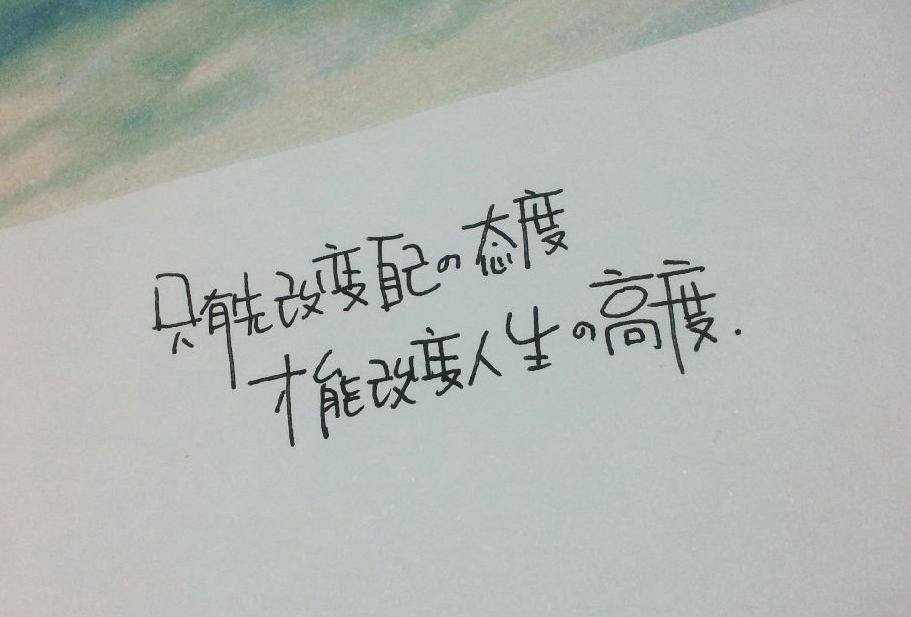 只有先改变自己の态度
才能改变人生の高度.